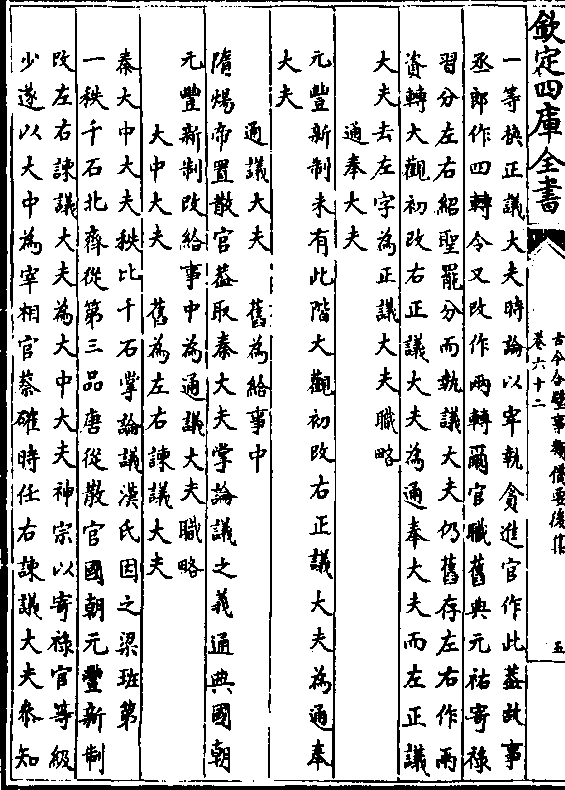 欽定四庫全書
古今合璧事類備要後集
卷六十二
五
一等換正議大夫時論以宰執貪進官作此葢故事
丞郎作四轉令又改作兩轉爾官職舊典元祐寄祿
習分左右紹聖罷分而執議大夫仍舊存左右作兩
資轉大觀初改右正議大夫為通奉大夫而左正議
大夫去左字為正議大夫職略
通奉大夫
元豐新制未有此階大觀初改右正議大夫為通奉
大夫
通議大夫　舊為給事中
隋煬帝置散官葢取秦大夫掌論議之義通典國朝
元豐新制改給事中為通議大夫職略
大中大夫　舊為左右諫議大夫
秦大中大夫秩比千石掌論議漢氏因之梁班第
一秩千石北齊從第三品唐從散官國朝元豐新制
改左右諫議大夫為大中大夫神宗以寄祿官等級
少遂以大中為宰相官蔡確時任右諫議大夫參知